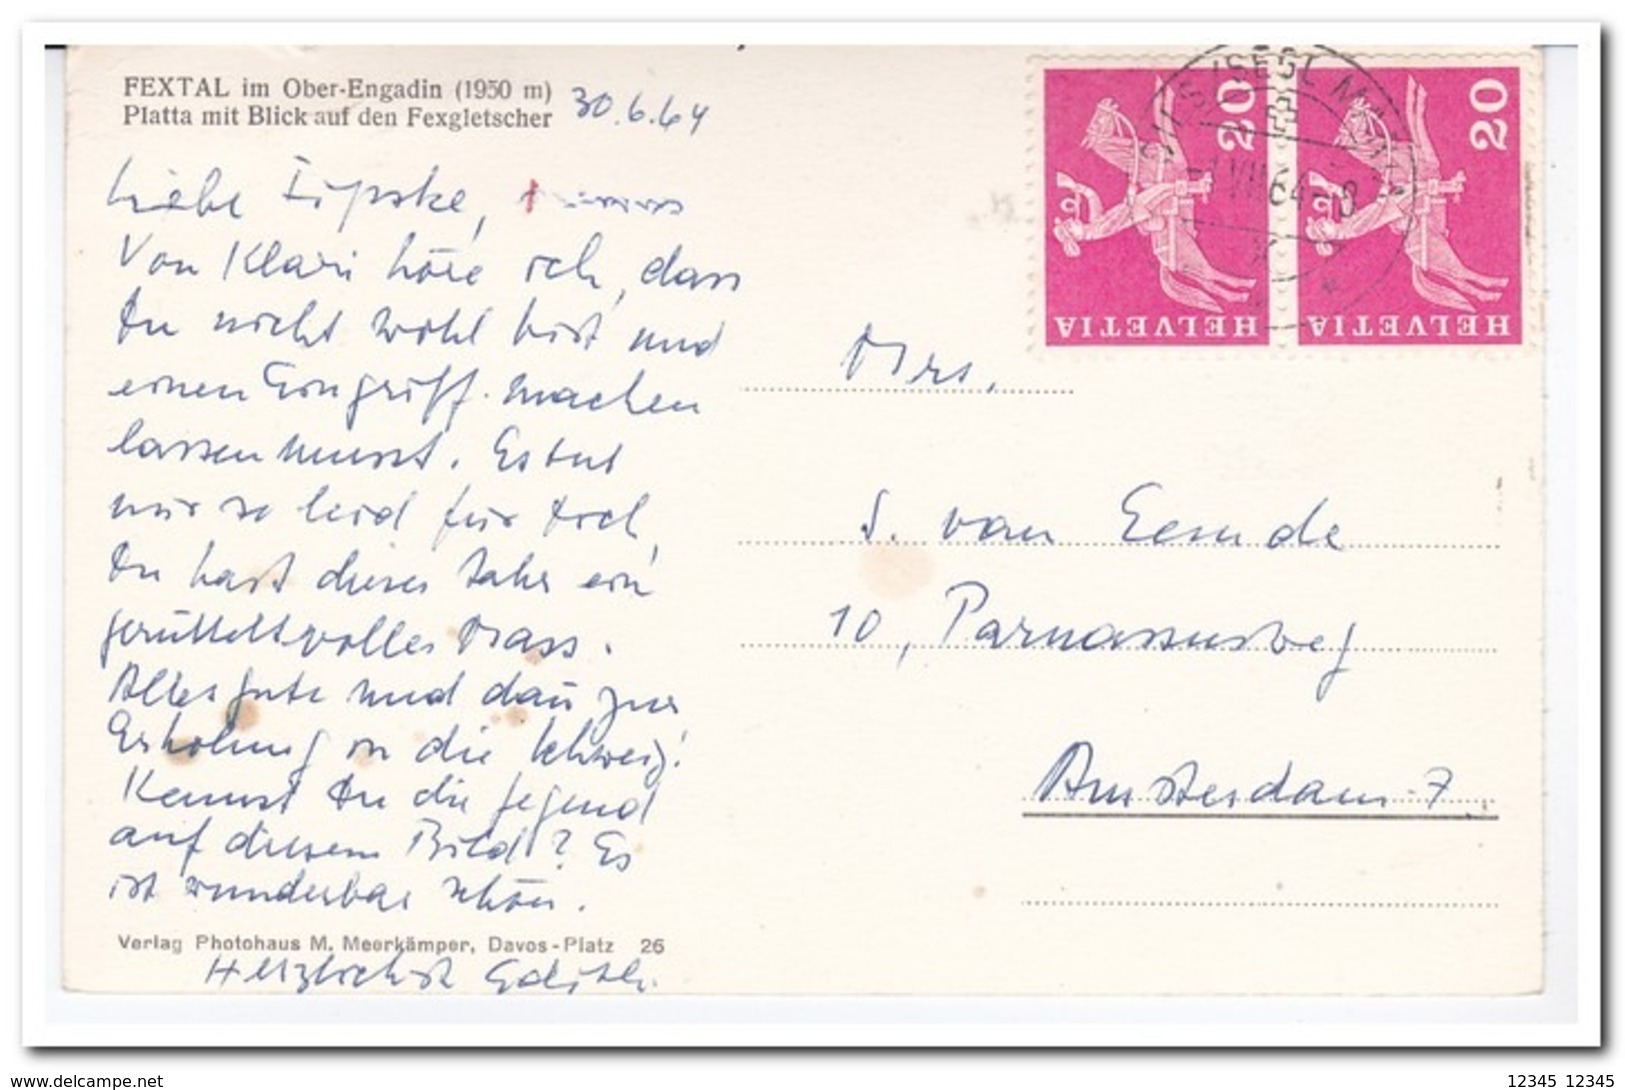 FEXTAL im Ober-Engadin (1950 m)
Platta mit Blick auf den Fexgletscher
30.6.64
Liebe
Von Klari höre ich, dass
Du nicht wohl bist und
einen Eingriff machen
lassen musst. Es tut
mir so leid für Dich,
Du hast dieses Jahr ein
gerüttelt volles Mass.
Alles Gute und dann zur
Erholung in die Schweiz!
Kennst Du die Gegend
auf diesem Bild? Es
ist wunderbar schön.
Verlag Photohaus M. Meerkämper, Davos-Platz 26
Herzlichst Edith.
20 20
HELVETIA HELVETIA
VII 64
Mrs.
S. van
10, Parnassusweg
Amsterdam-Z
12345 12345